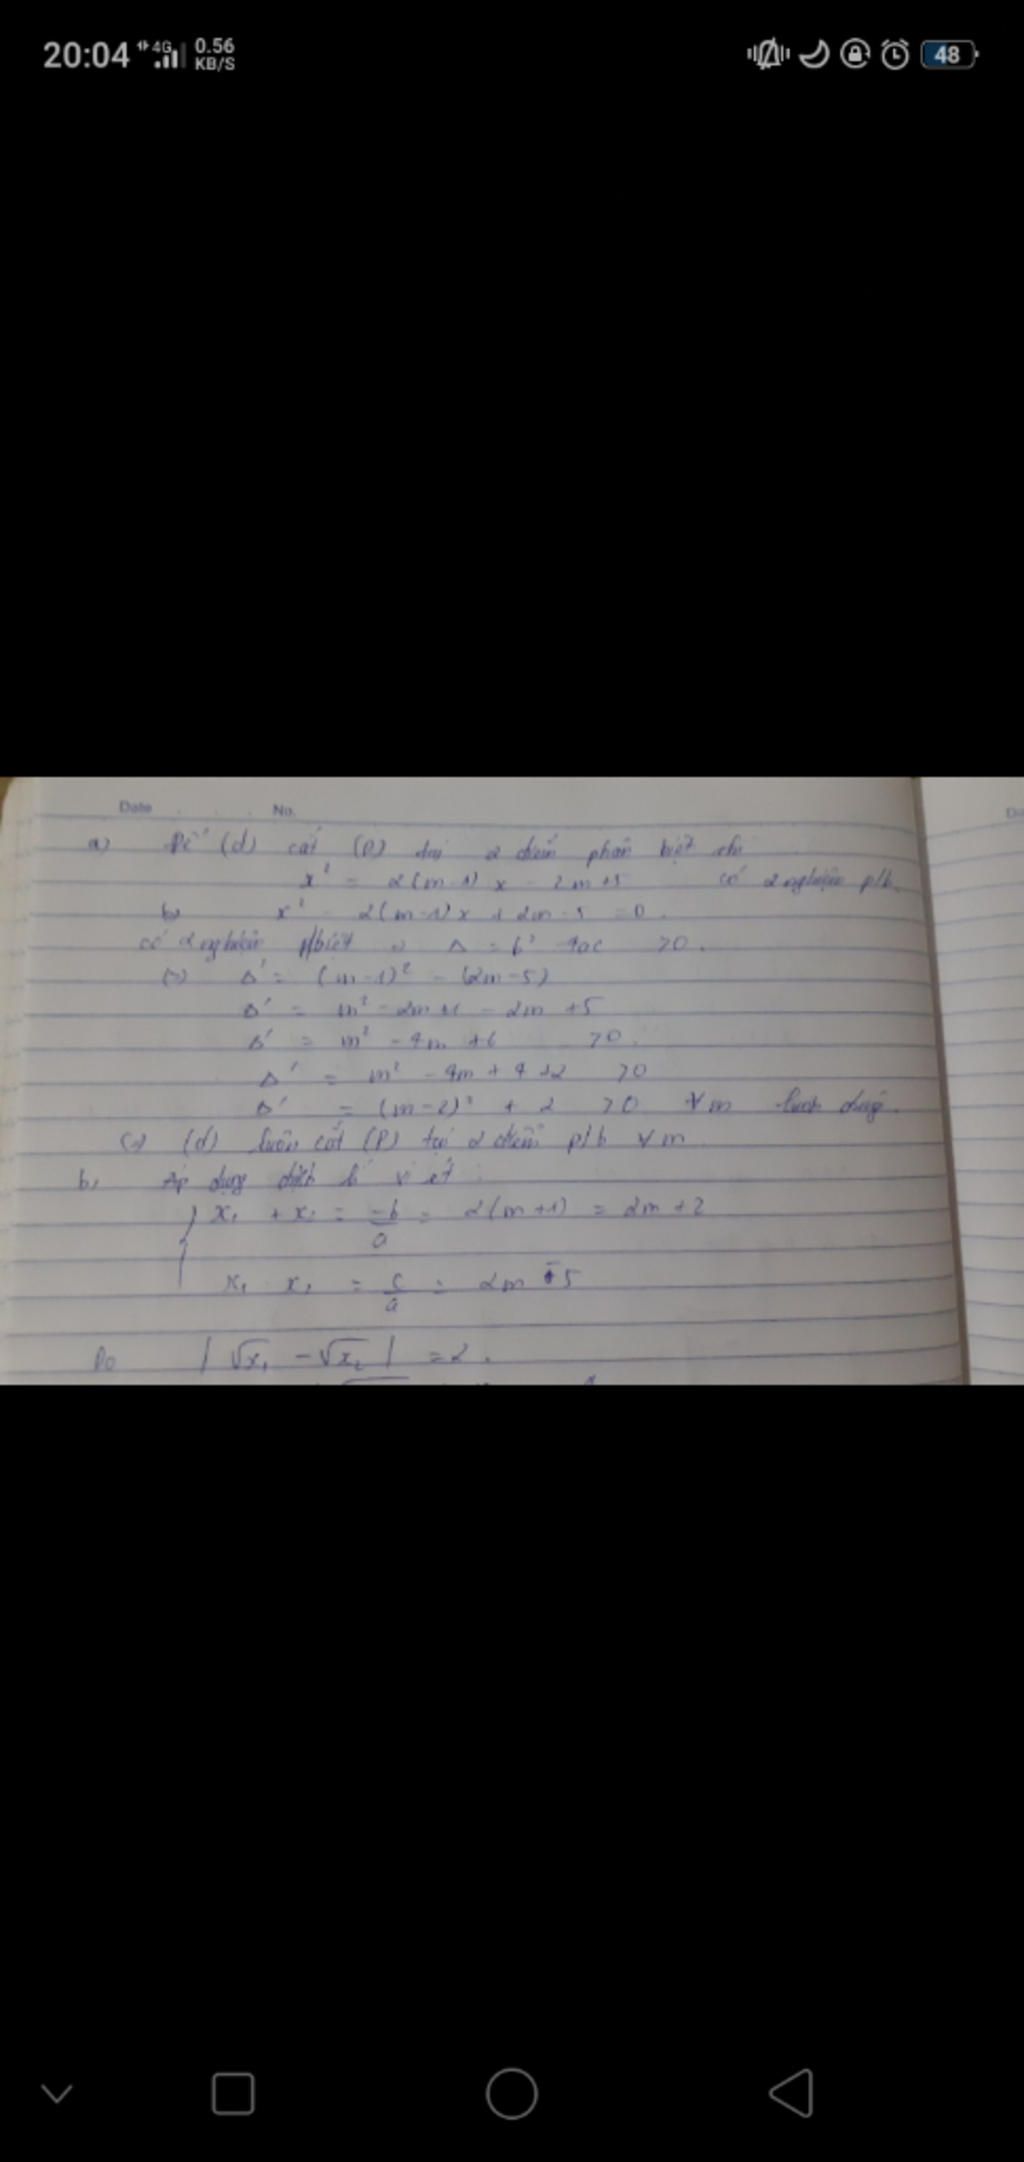 20:04 4G 0.56 KB/S 48
Date No.
a) Để (d) cắt (P) tại 2 điểm phân biệt thì
x² = 2(m-1)x - 2m+5 có 2 nghiệm p/b
x² - 2(m-1)x + 2m-5 = 0.
có 2 nghiệm p/biệt Δ = b² - 4ac >0.
Δ' = (m-1)² - (2m-5)
Δ' = m² - 2m+1 - 2m +5
Δ' = m² - 4m +6 >0.
Δ' = m² - 4m + 4 +2 >0
Δ' = (m-2)² + 2 >0 ∀m luôn đúng.
(d) luôn cắt (P) tại 2 điểm p/b ∀m
b, Áp dụng định lí vi ét:
x₁ + x₂ = -b/a = 2(m+1) = 2m+2
x₁ . x₂ = c/a = 2m-5
|√x₁ - √x₂| = 2.